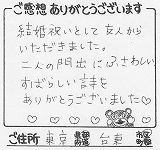 ご感想ありがとうございます
結婚祝いとして友人から
いただきました。
二人の門出にふさわしい
すばらしい詩を
ありがとうございました♡
ご住所 東京 都道府県 台東 市区町村